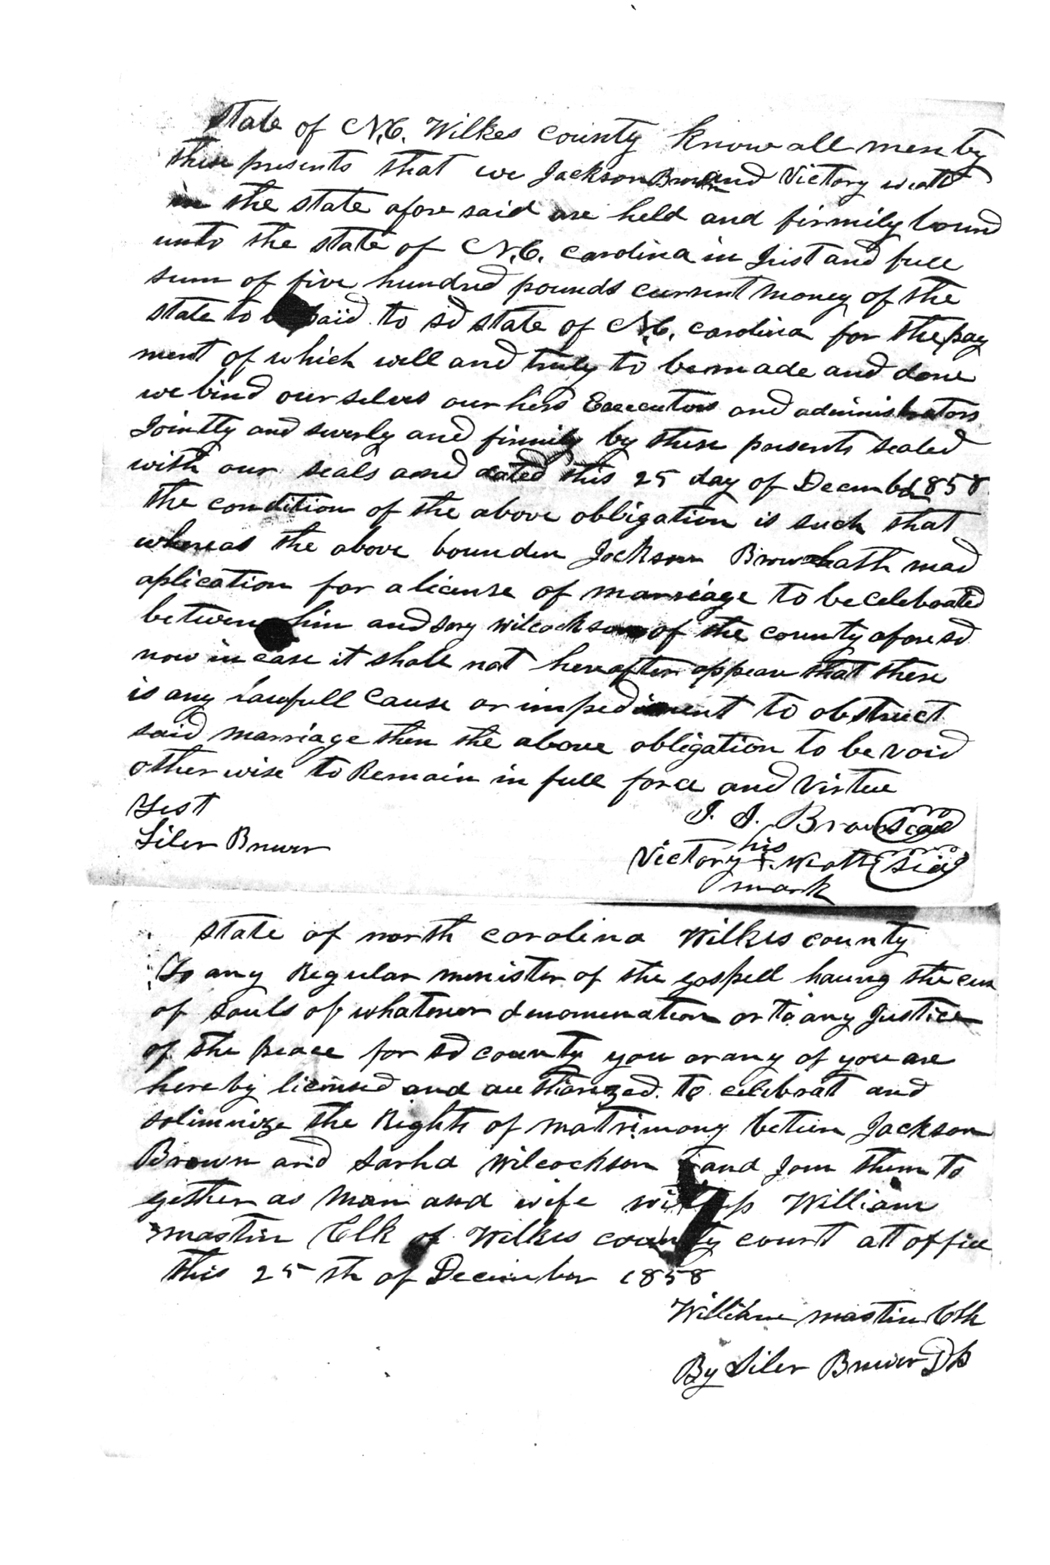 State of N.C. Wilkes county know all men by
these presents that we Jackson Brown and Victory
in the state afore said are held and firmily bound
unto the state of N.C. carolina in Just and full
sum of five hundred pounds current money of the
state to be paid to sd state of N.C. carolina for the pay
ment of which well and truly to be made and done
we bind our selves our hers Executors and administrators
Jointly and severly and firmily by these presents sealed
with our seals and dated this 25 day of Decembr 1858
the condition of the above obligation is such that
whereas the above bounden Jackson Brown hath mad
aplication for a license of marriage to be celebrated
between him and Wilcockson of the county afore sd
now in case it shall not hereafter appear that there
is any lawfull cause or impediment to obstruct
said marriage then the above obligation to be void
other wise to Remain in full force and virtue
Test
J. J. Brown seal
Siler Brewer
his
Victory + seal
mark
State of north carolina Wilkes county
To any Regular minister of the gospell haung the cua
of souls of whatever denomination or to any Justice
of the peace for sd county you or any of you are
here by licensed and authorized to celebrat and
solimnize the Rights of matrimony between Jackson
Brown and Sarha Wilcockson and Join them to
gether as man and wife William
mastin Clk of Wilkes county court att office
this 25 th of December 1858
William mastin Clk
By Siler Brewer D